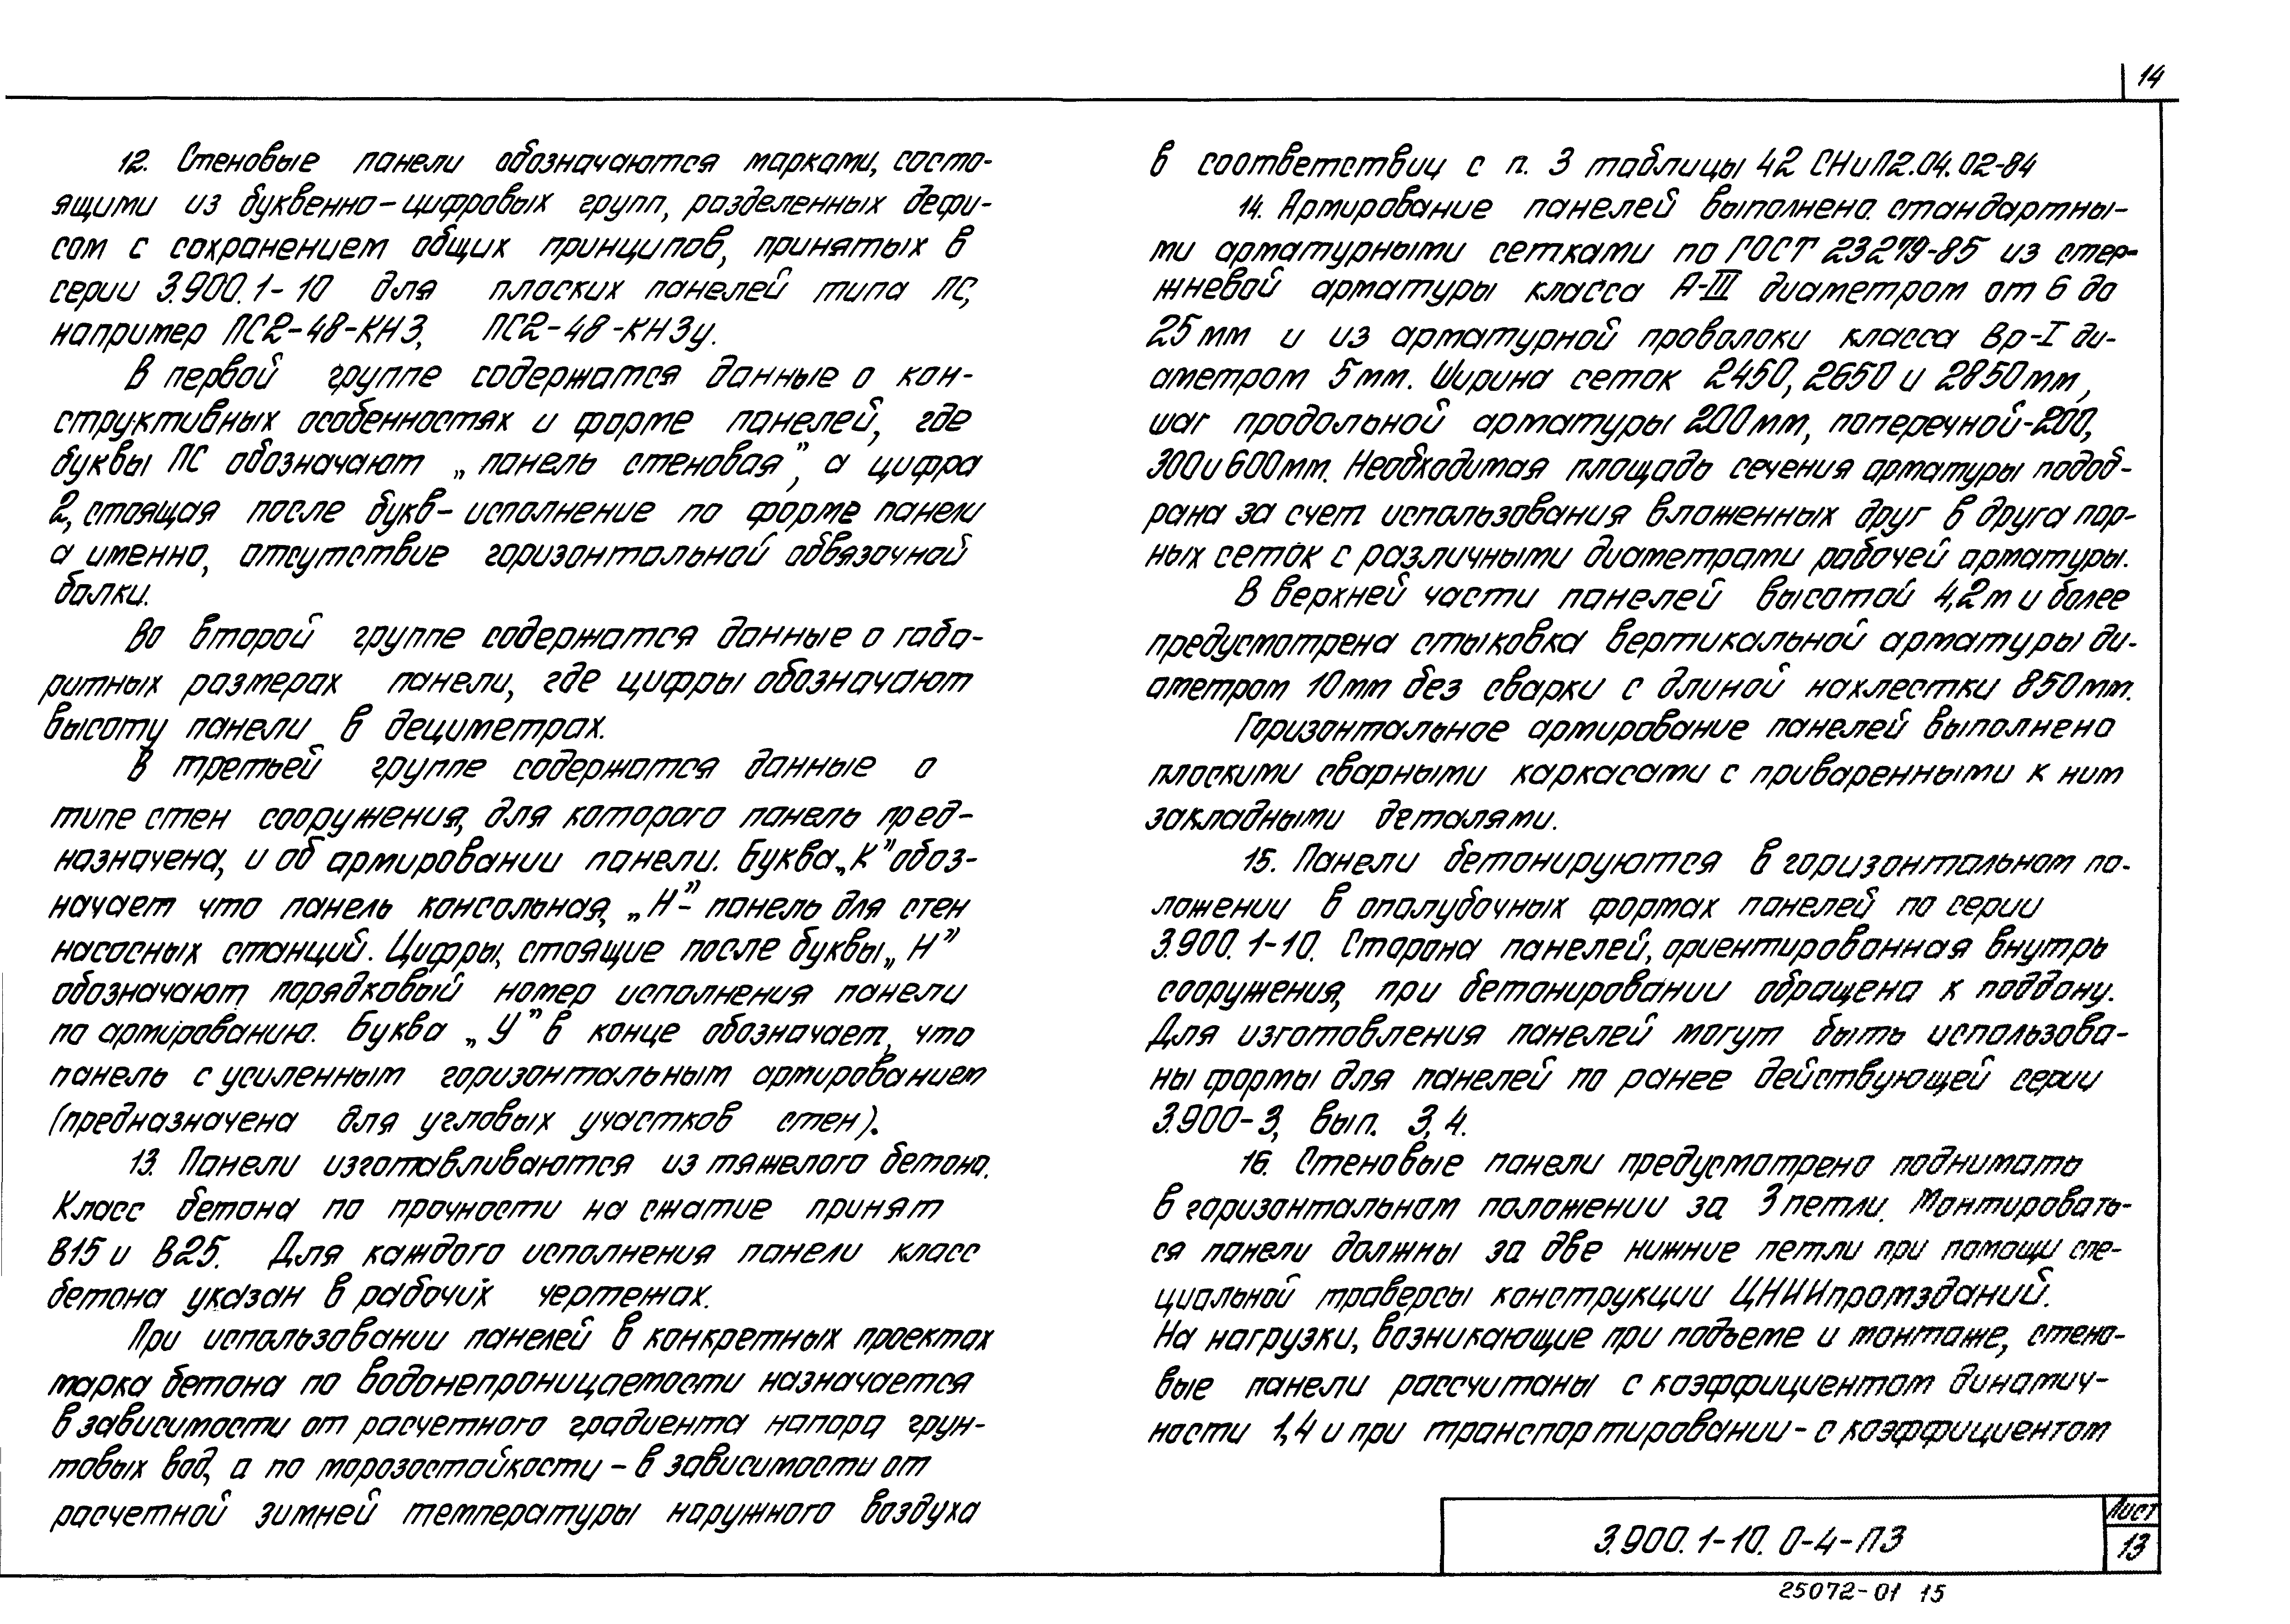 14
12. Стеновые панели обозначаются марками, состо-
ящими из буквенно-цифровых групп, разделенных дефи-
сом с сохранением общих принципов, принятых в
серии 3.900.1-10 для плоских панелей типа ПС,
например ПС2-48-КН3, ПС2-48-КН3у.
В первой группе содержатся данные о кон-
структивных особенностях и форме панелей, где
буквы ПС обозначают „панель стеновая”, а цифра
2, стоящая после букв- исполнение по форме панели
а именно, отсутствие горизонтальной обвязочной
балки.
Во второй группе содержатся данные о габа-
ритных размерах панели, где цифры обозначают
высоту панели в дециметрах.
В третьей группе содержатся данные о
типе стен сооружения, для которого панель пред-
назначена, и об армировании панели. Буква „К” обоз-
начает что панель консольная, „Н”- панель для стен
насосных станций. Цифры, стоящие после буквы „Н”
обозначают порядковый номер исполнения панели
по армированию. Буква „У” в конце обозначает, что
панель с усиленным горизонтальным армированием
(предназначена для угловых участков стен).
13. Панели изготавливаются из тяжелого бетона.
Класс бетона по прочности на сжатие принят
В15 и В25. Для каждого исполнения панели класс
бетона указан в рабочих чертежах.
При использовании панелей в конкретных проектах
марка бетона по водонепроницаемости назначается
в зависимости от расчетного градиента напора грун-
товых вод, а по морозостойкости - в зависимости от
расчетной зимней температуры наружного воздуха
в соответствии с п. 3 таблицы 42 СНиП2.04.02-84
14. Армирование панелей выполнено стандартны-
ми арматурными сетками по ГОСТ 23279-85 из стер-
жневой арматуры класса А-III диаметром от 6 до
25мм и из арматурной проволоки класса Вр-I ди-
аметром 5мм. Ширина сеток 2450, 2650 и 2850мм,
шаг продольной арматуры 200мм, поперечной-200,
300 и 600мм. Необходимая площадь сечения арматуры подоб-
рана за счет использования вложенных друг в друга пар-
ных сеток с различными диаметрами рабочей арматуры.
В верхней части панелей высотой 4,2м и более
предусмотрена стыковка вертикальной арматуры ди-
аметром 10мм без сварки с длиной нахлестки 850мм.
Горизонтальное армирование панелей выполнено
плоскими сварными каркасами с приваренными к ним
закладными деталями.
15. Панели бетонируются в горизонтальном по-
ложении в опалубочных формах панелей по серии
3.900.1-10. Сторона панелей, ориентированная внутрь
сооружения, при бетонировании обращена к поддону.
Для изготовления панелей могут быть использова-
ны формы для панелей по ранее действующей серии
3.900-3, вып. 3,4.
16. Стеновые панели предусмотрено поднимать
в горизонтальном положении за 3 петли. Монтировать-
ся панели должны за две нижние петли при помощи спе-
циальной траверсы конструкции ЦНИИпромзданий.
На нагрузки, возникающие при подъеме и монтаже, стено-
вые панели рассчитаны с коэффициентом динамич-
ности 1,4 и при транспортировании - с коэффициентом
3.900.1-10. 0-4-ПЗ
Лист
13
25072-01 15